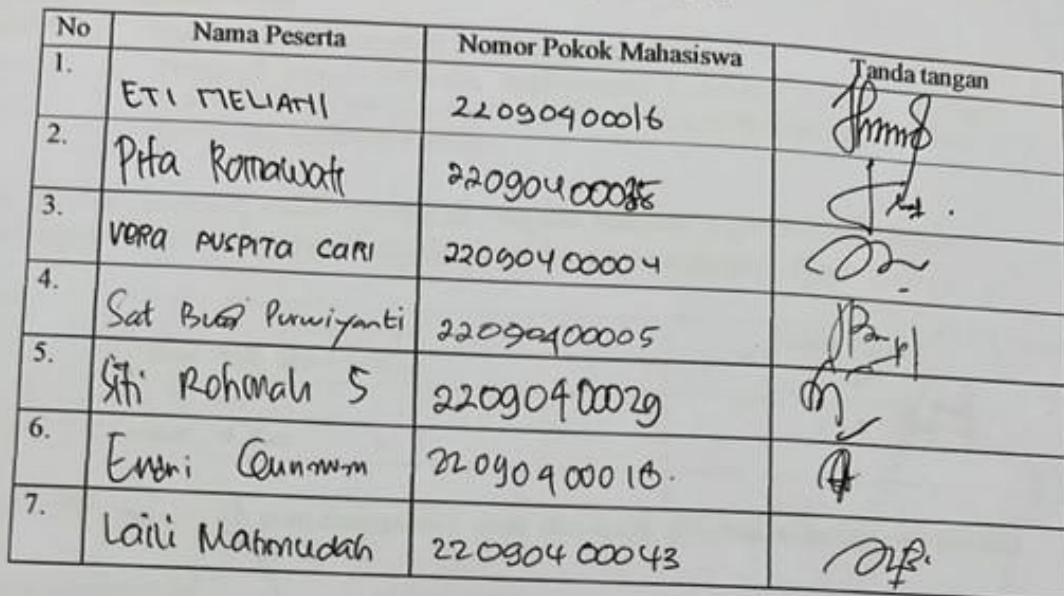 No Nama Peserta Nomor Pokok Mahasiswa Tanda tangan
1. ETI MELIATI 22090400016
2. Pita Romawati
3. VERA PUSPITA CARI 22090400004
4. Sat Budi Purwiyanti 22090400005
5. Siti Rohmah S 22090400029
6. 22090400018.
7. Laili Mahmudah 22090400043